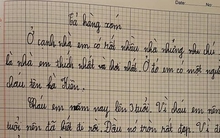 Tả hàng xóm
Ở cạnh nhà em có rất nhiều nhà nhưng nhà chú
là nhà em thích nhất và hơi nhất. Ở đó em có một người
cháu tên là Hiền.
Cháu em năm nay lên 3 tuổi. Vì cháu em năm
tuổi nên đã biết đi rồi. Đầu nó tròn rất đẹp. Vì